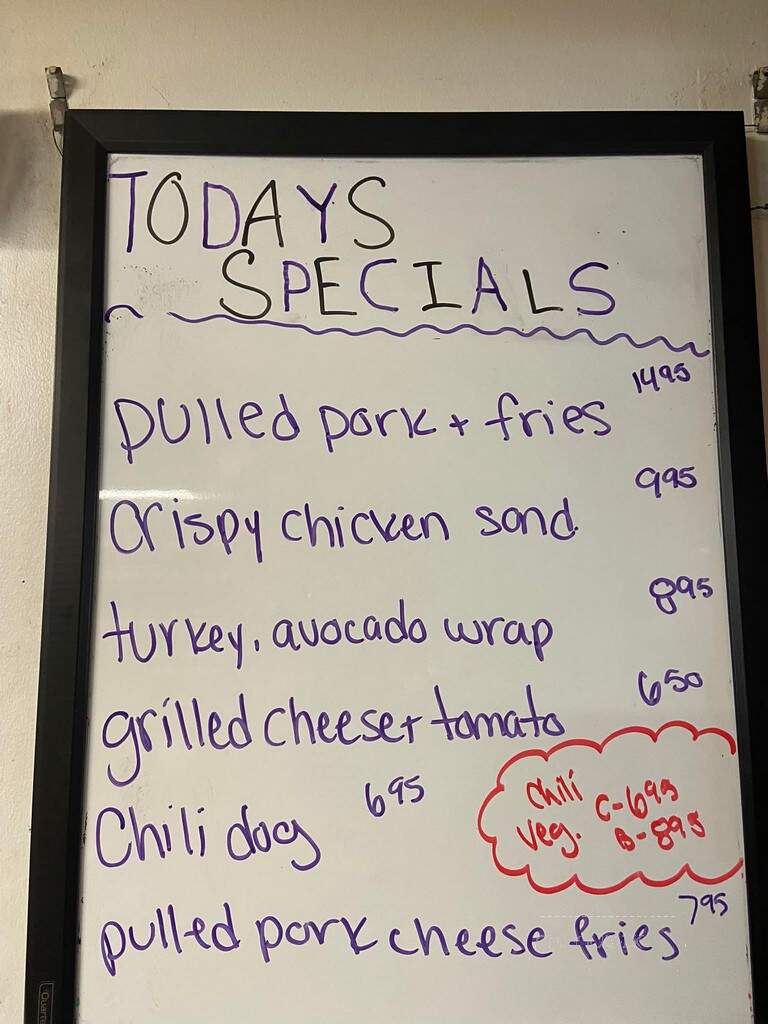 TODAYS
SPECIALS
pulled pork + fries 1495
crispy chicken sand 995
turkey, avocado wrap 895
grilled cheese + tomato 650
Chili dog 695
Chili C-695
Veg. B-895
pulled pork cheese fries 795
Quartet